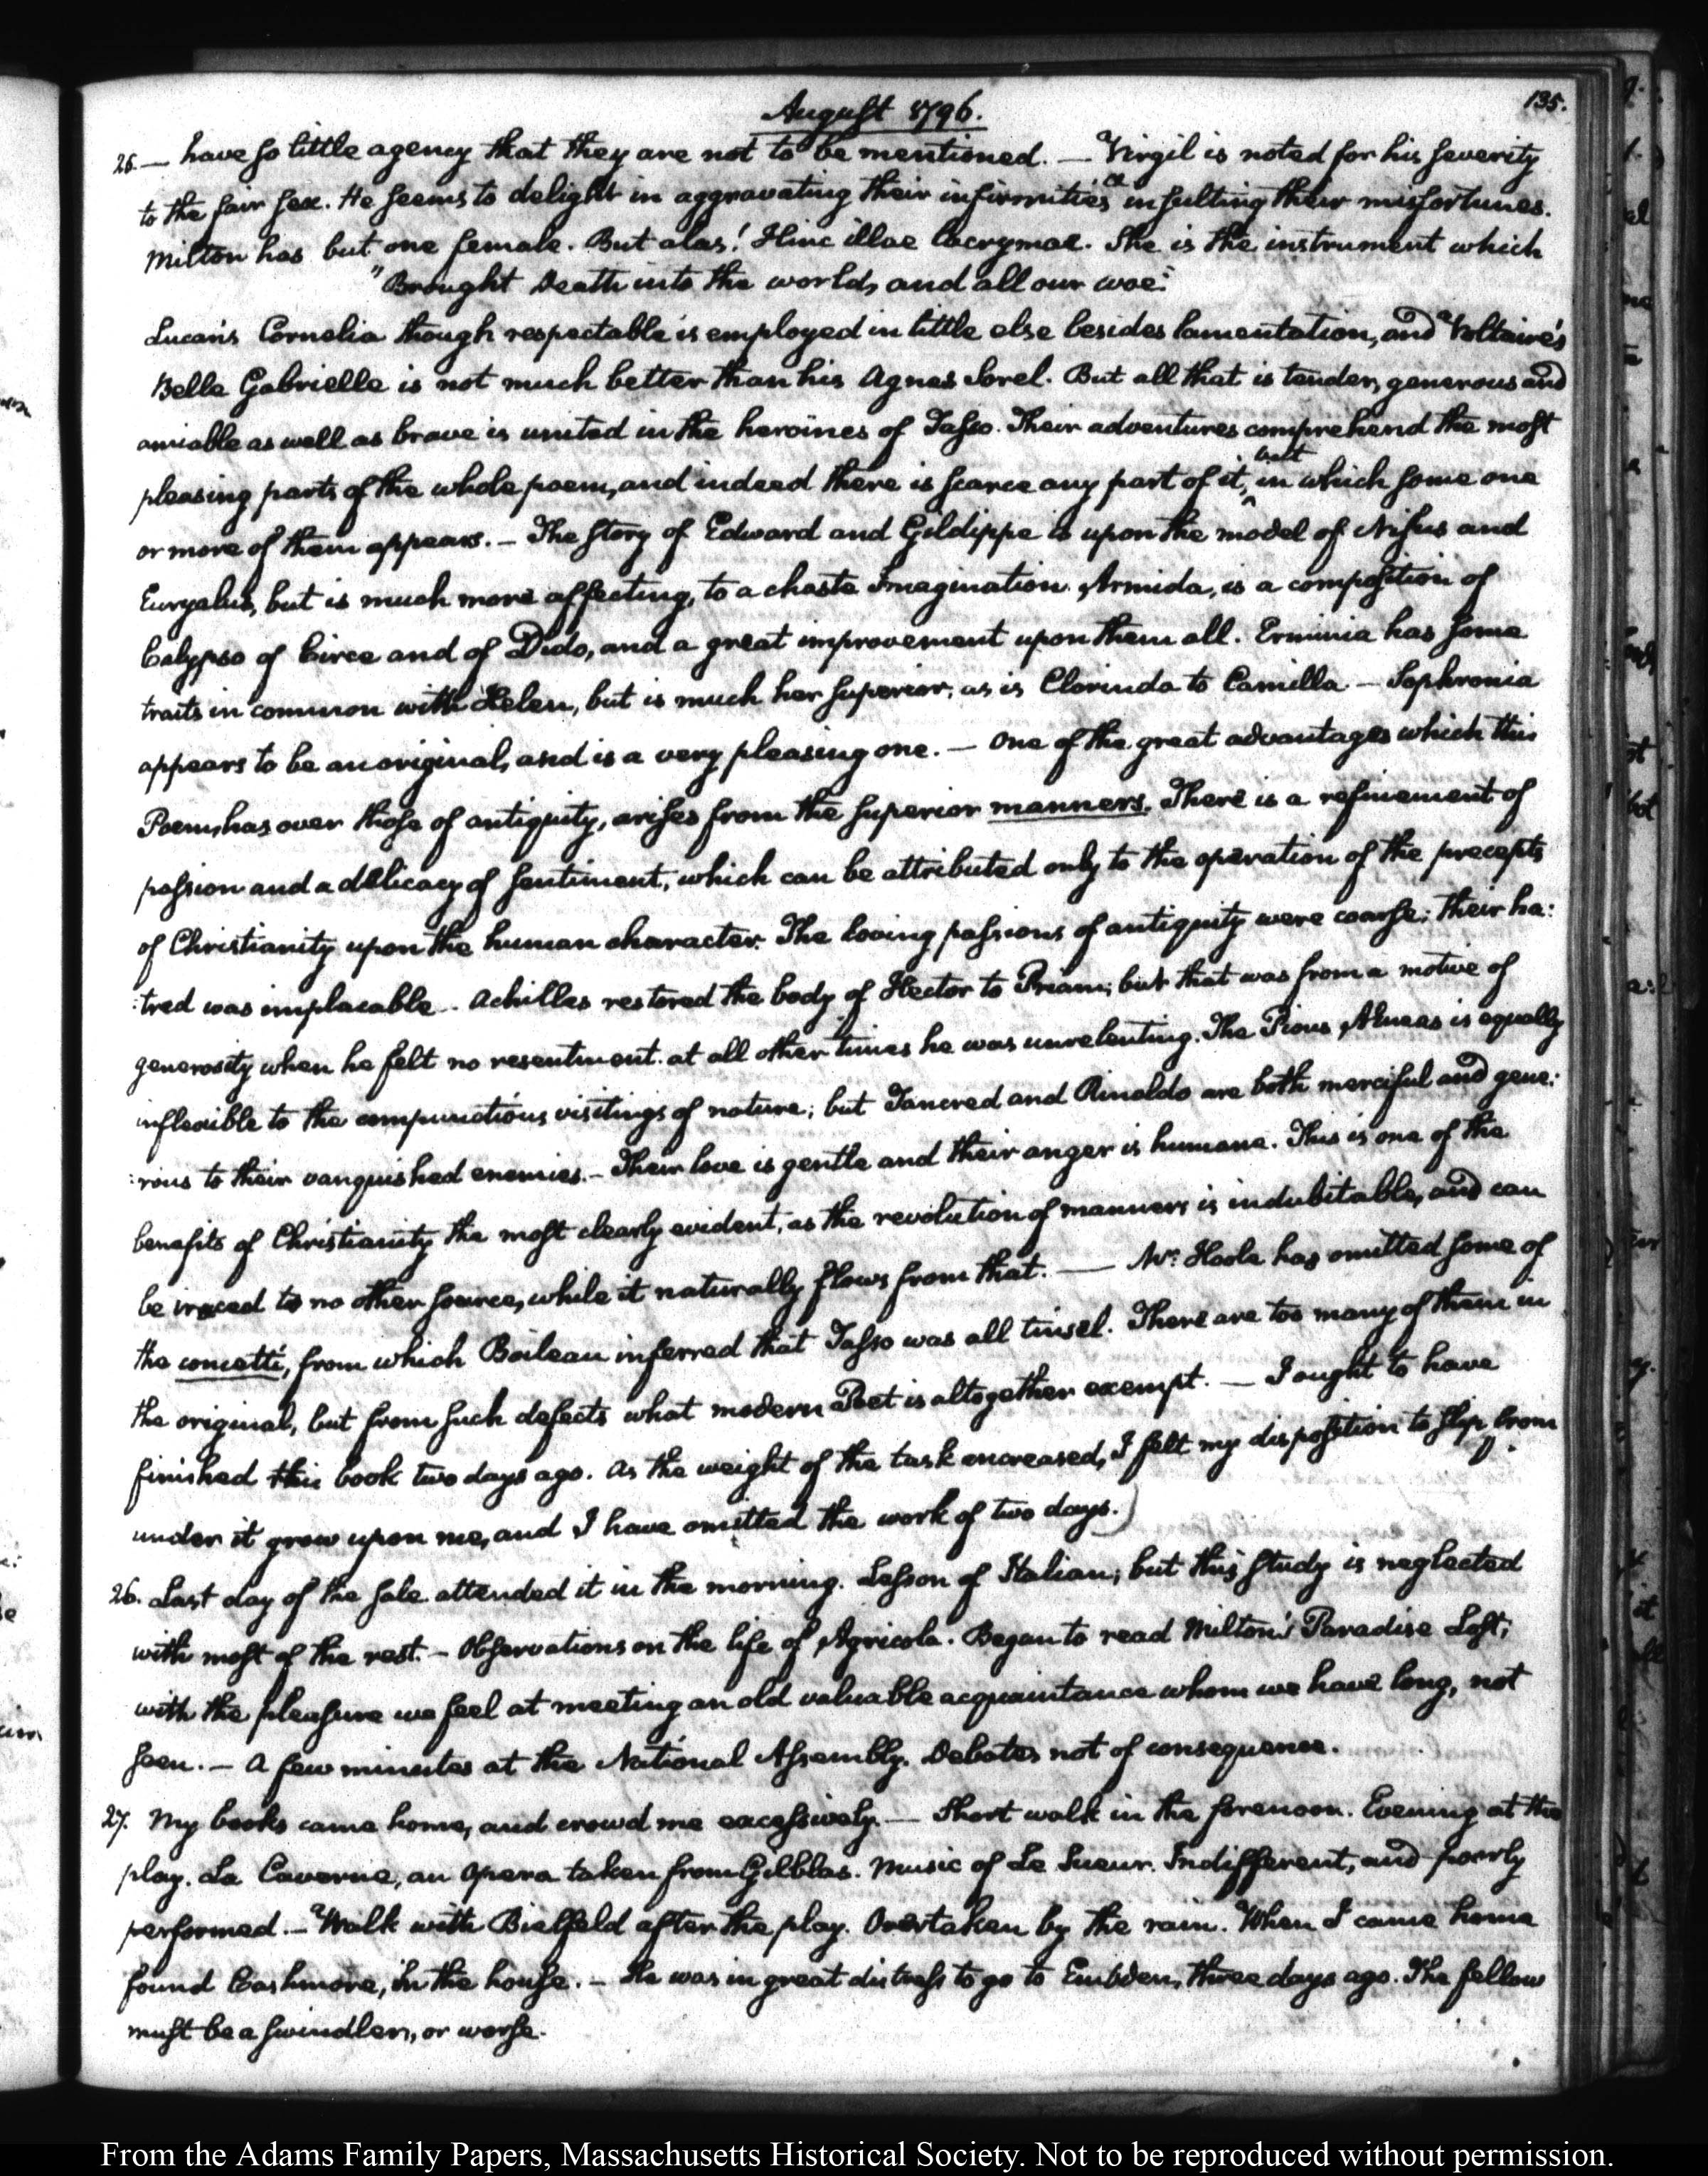 August 1796.
135.
25. — have so little agency that they are not to be mentioned. — Virgil is noted for his severity
to the fair sex. He seems to delight in aggravating their infirmities & insulting their misfortunes.
Milton has but one female. But alas! Hinc illae lacrymae. She is the instrument which
"Brought Death into the world, and all our woe."
Lucan's Cornelia though respectable is employed in little else besides lamentation, and Voltaire's
Belle Gabrielle is not much better than his Agnes Sorel. But all that is tender, generous and
amiable as well as brave is united in the heroïnes of Tasso. Their adventures comprehend the most
pleasing parts of the whole poem, and indeed there is scarce any part of it, but in which some one
or more of them appears. — The story of Edward and Gildippe is upon the model of Nisus and
Euryalus, but is much more affecting, to a chaste imagination. Armida, is a composition of
Calypso of Circe and of Dido, and a great improvement upon them all. Erminia has some
traits in common with Helen, but is much her superior, as is Clorinda to Camilla — Sophronia
appears to be an original, and is a very pleasing one. — One of the great advantages which this
Poem, has over those of antiquity, arises from the superior manners. There is a refinement of
passion and a delicacy of sentiment, which can be attributed only to the operation of the precepts
of Christianity upon the human character. The loving passions of antiquity were coarse; their ha:
:tred was implacable. Achilles restored the body of Hector to Priam; but that was from a motive of
generosity when he felt no resentment. at all other times he was unrelenting. The Pious Æneas is equally
inflexible to the compunctious visitings of nature; but Tancred and Rinaldo are both merciful and gene:
:rous to their vanquished enemies. — Their love is gentle and their anger is humane. This is one of the
benefits of Christianity the most clearly evident, as the revolution of manners is indubitable, and can
be traced to no other source, while it naturally flows from that. — Mr. Hoole has omitted some of
the concetti, from which Boileau inferred that Tasso was all tinsel. There are too many of them in
the original, but from such defects what modern Poet is altogether exempt. — I ought to have
finished this book two days ago. As the weight of the task encreased, I felt my disposition to slip from
under it grow upon me, and I have omitted the work of two days.)
26. Last day of the sale attended it in the morning. Lesson of Italian; but this study is neglected
with most of the rest. — Observations on the life of Agricola. Began to read Milton's Paradise Lost;
with the pleasure we feel at meeting an old valuable acquaintance whom we have long, not
seen. — A few minutes at the National Assembly. Debates not of consequence.
27. My books came home, and crowd me excessively. — Short walk in the forenoon. Evening at the
play. La Caverne, an opera taken from Gilblas. Music of Le Sueur. Indifferent, and poorly
performed. — Walk with Bielfeld after the play. Overtaken by the rain. When I came home
found Cashmore, in the house. — He was in great distress to go to Embden, three days ago. The fellow
must be a swindler, or worse.
From the Adams Family Papers, Massachusetts Historical Society. Not to be reproduced without permission.